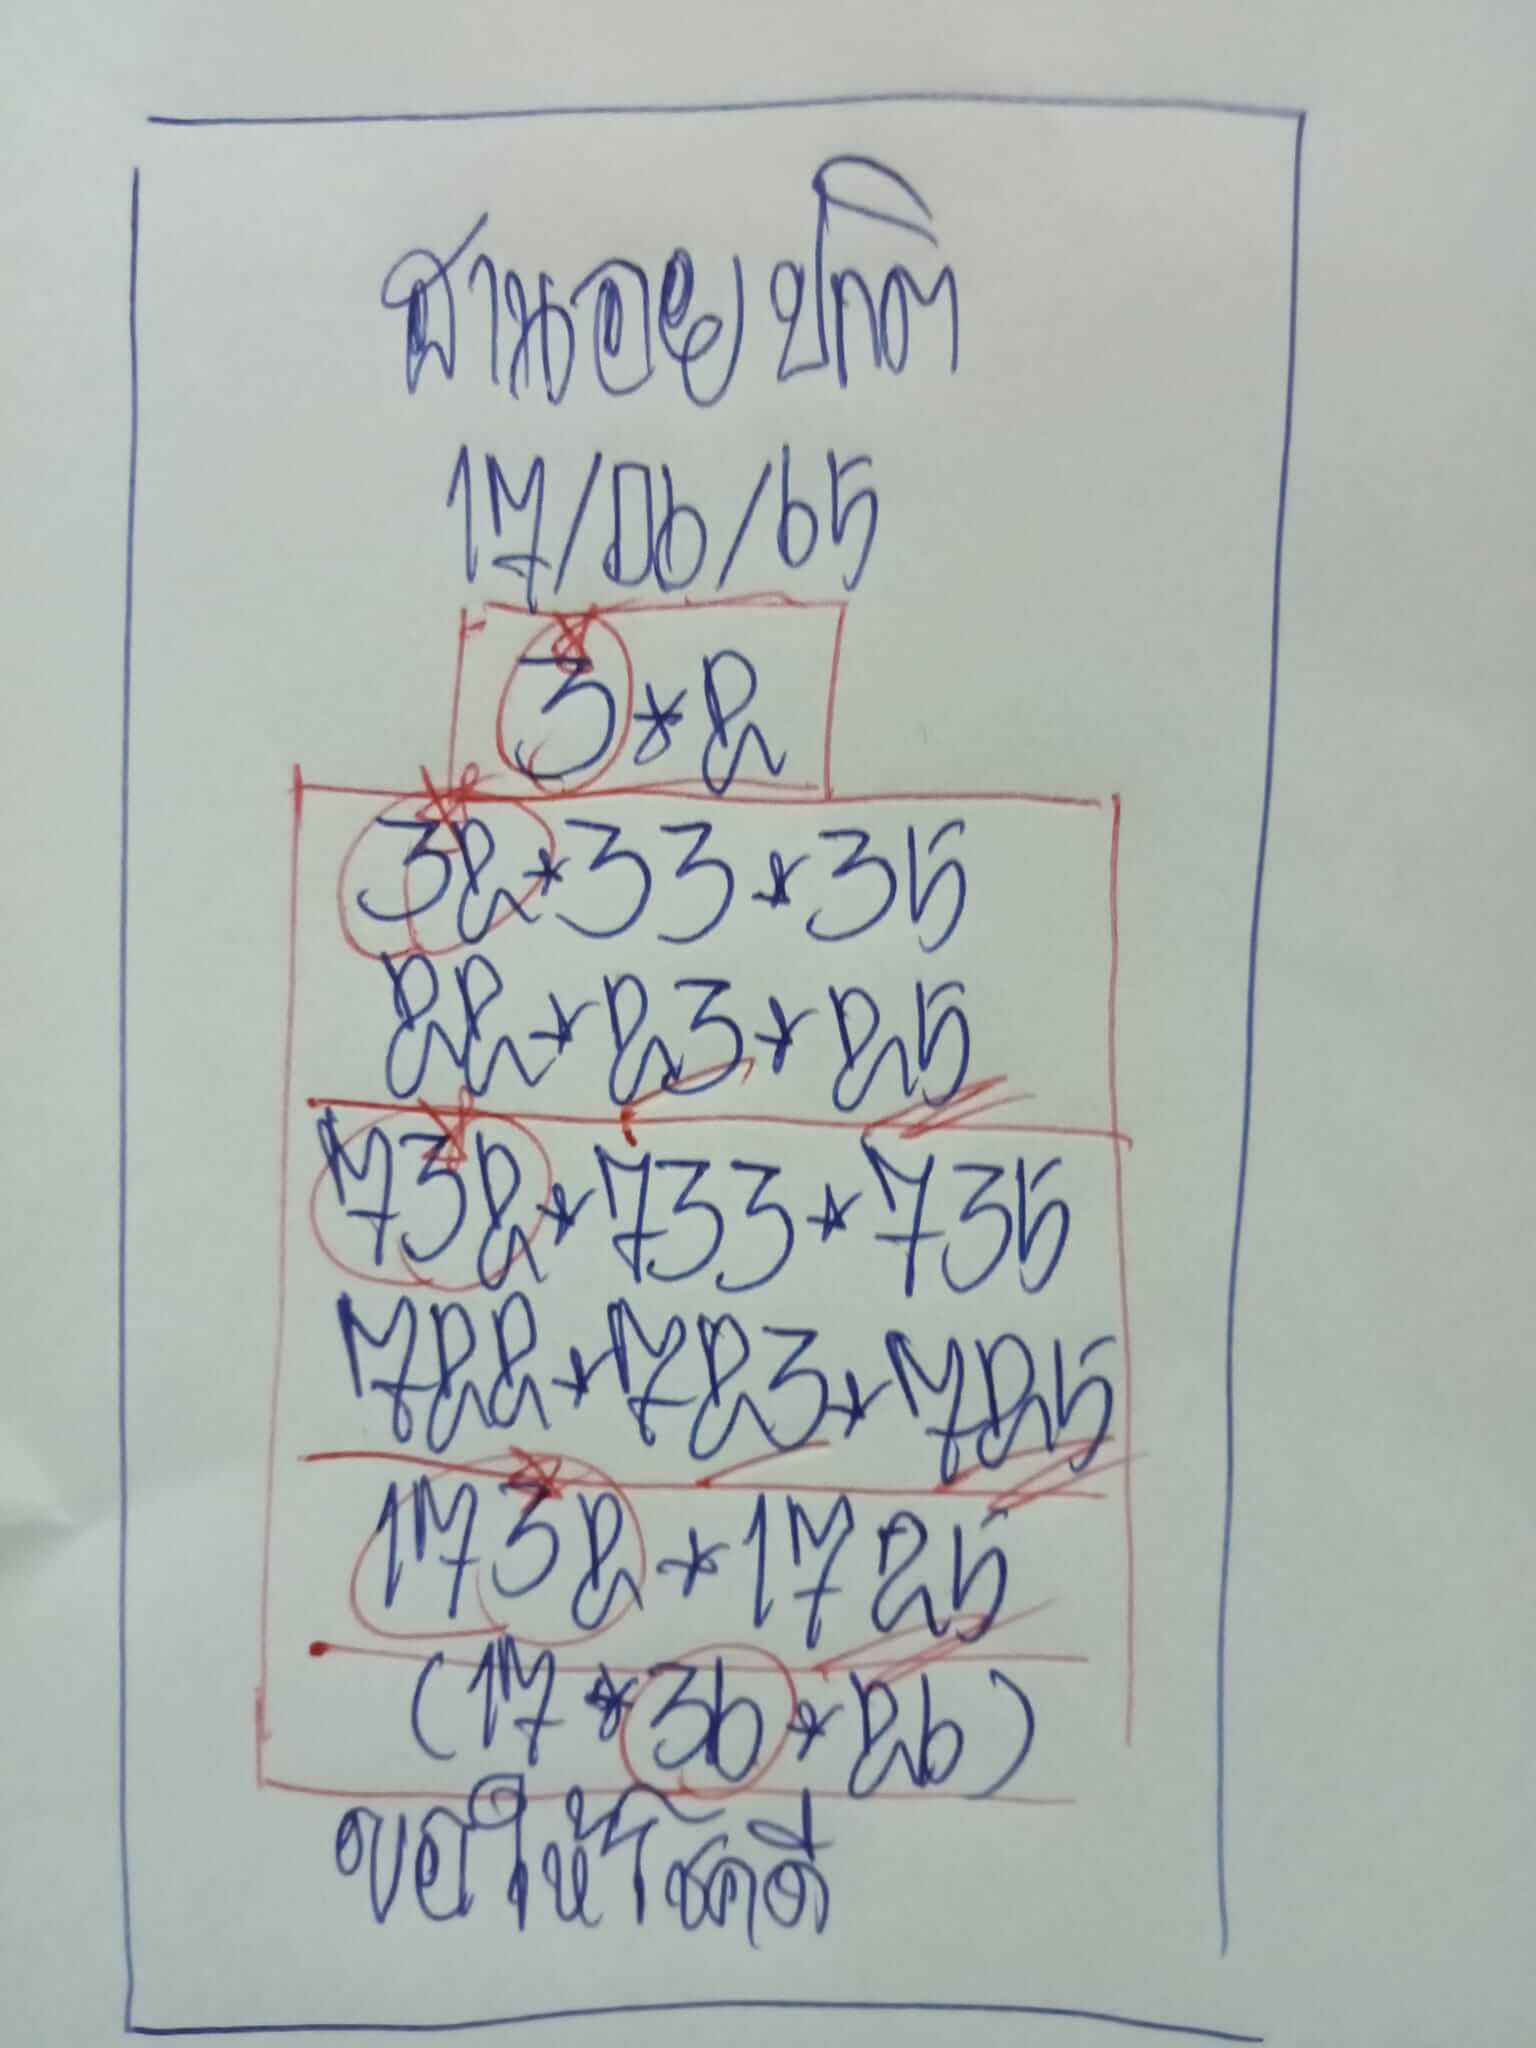 ฮานอย ปกติ
17/06/65
3*2
32*33*35
22*23*25
732*733*735
722*723*725
1732*1725
(17*36*26)
ขอให้โชคดี